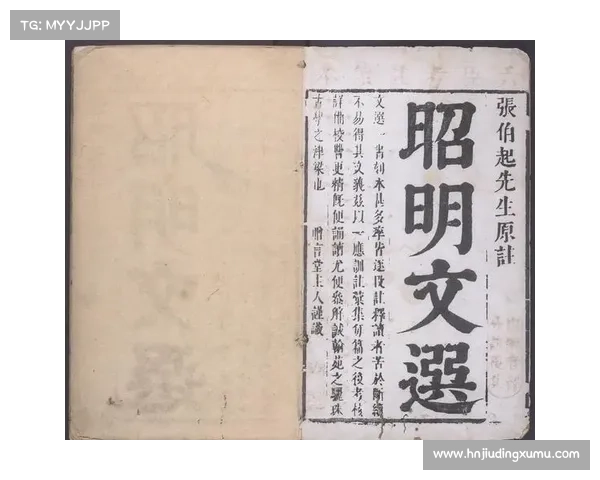 TG: MYYJJPP
張伯起先生原註
昭明文選
文選一書刻本甚多率皆逐段註釋讀者苦於斷續
不易得其文義茲以一應訓註彙集每篇之後考核
詳備校讐更精既便誦讀尤便參解誠翰苑之驪珠
古學之津梁也 贈言堂主人謹識
www.hnjiudingxumu.com